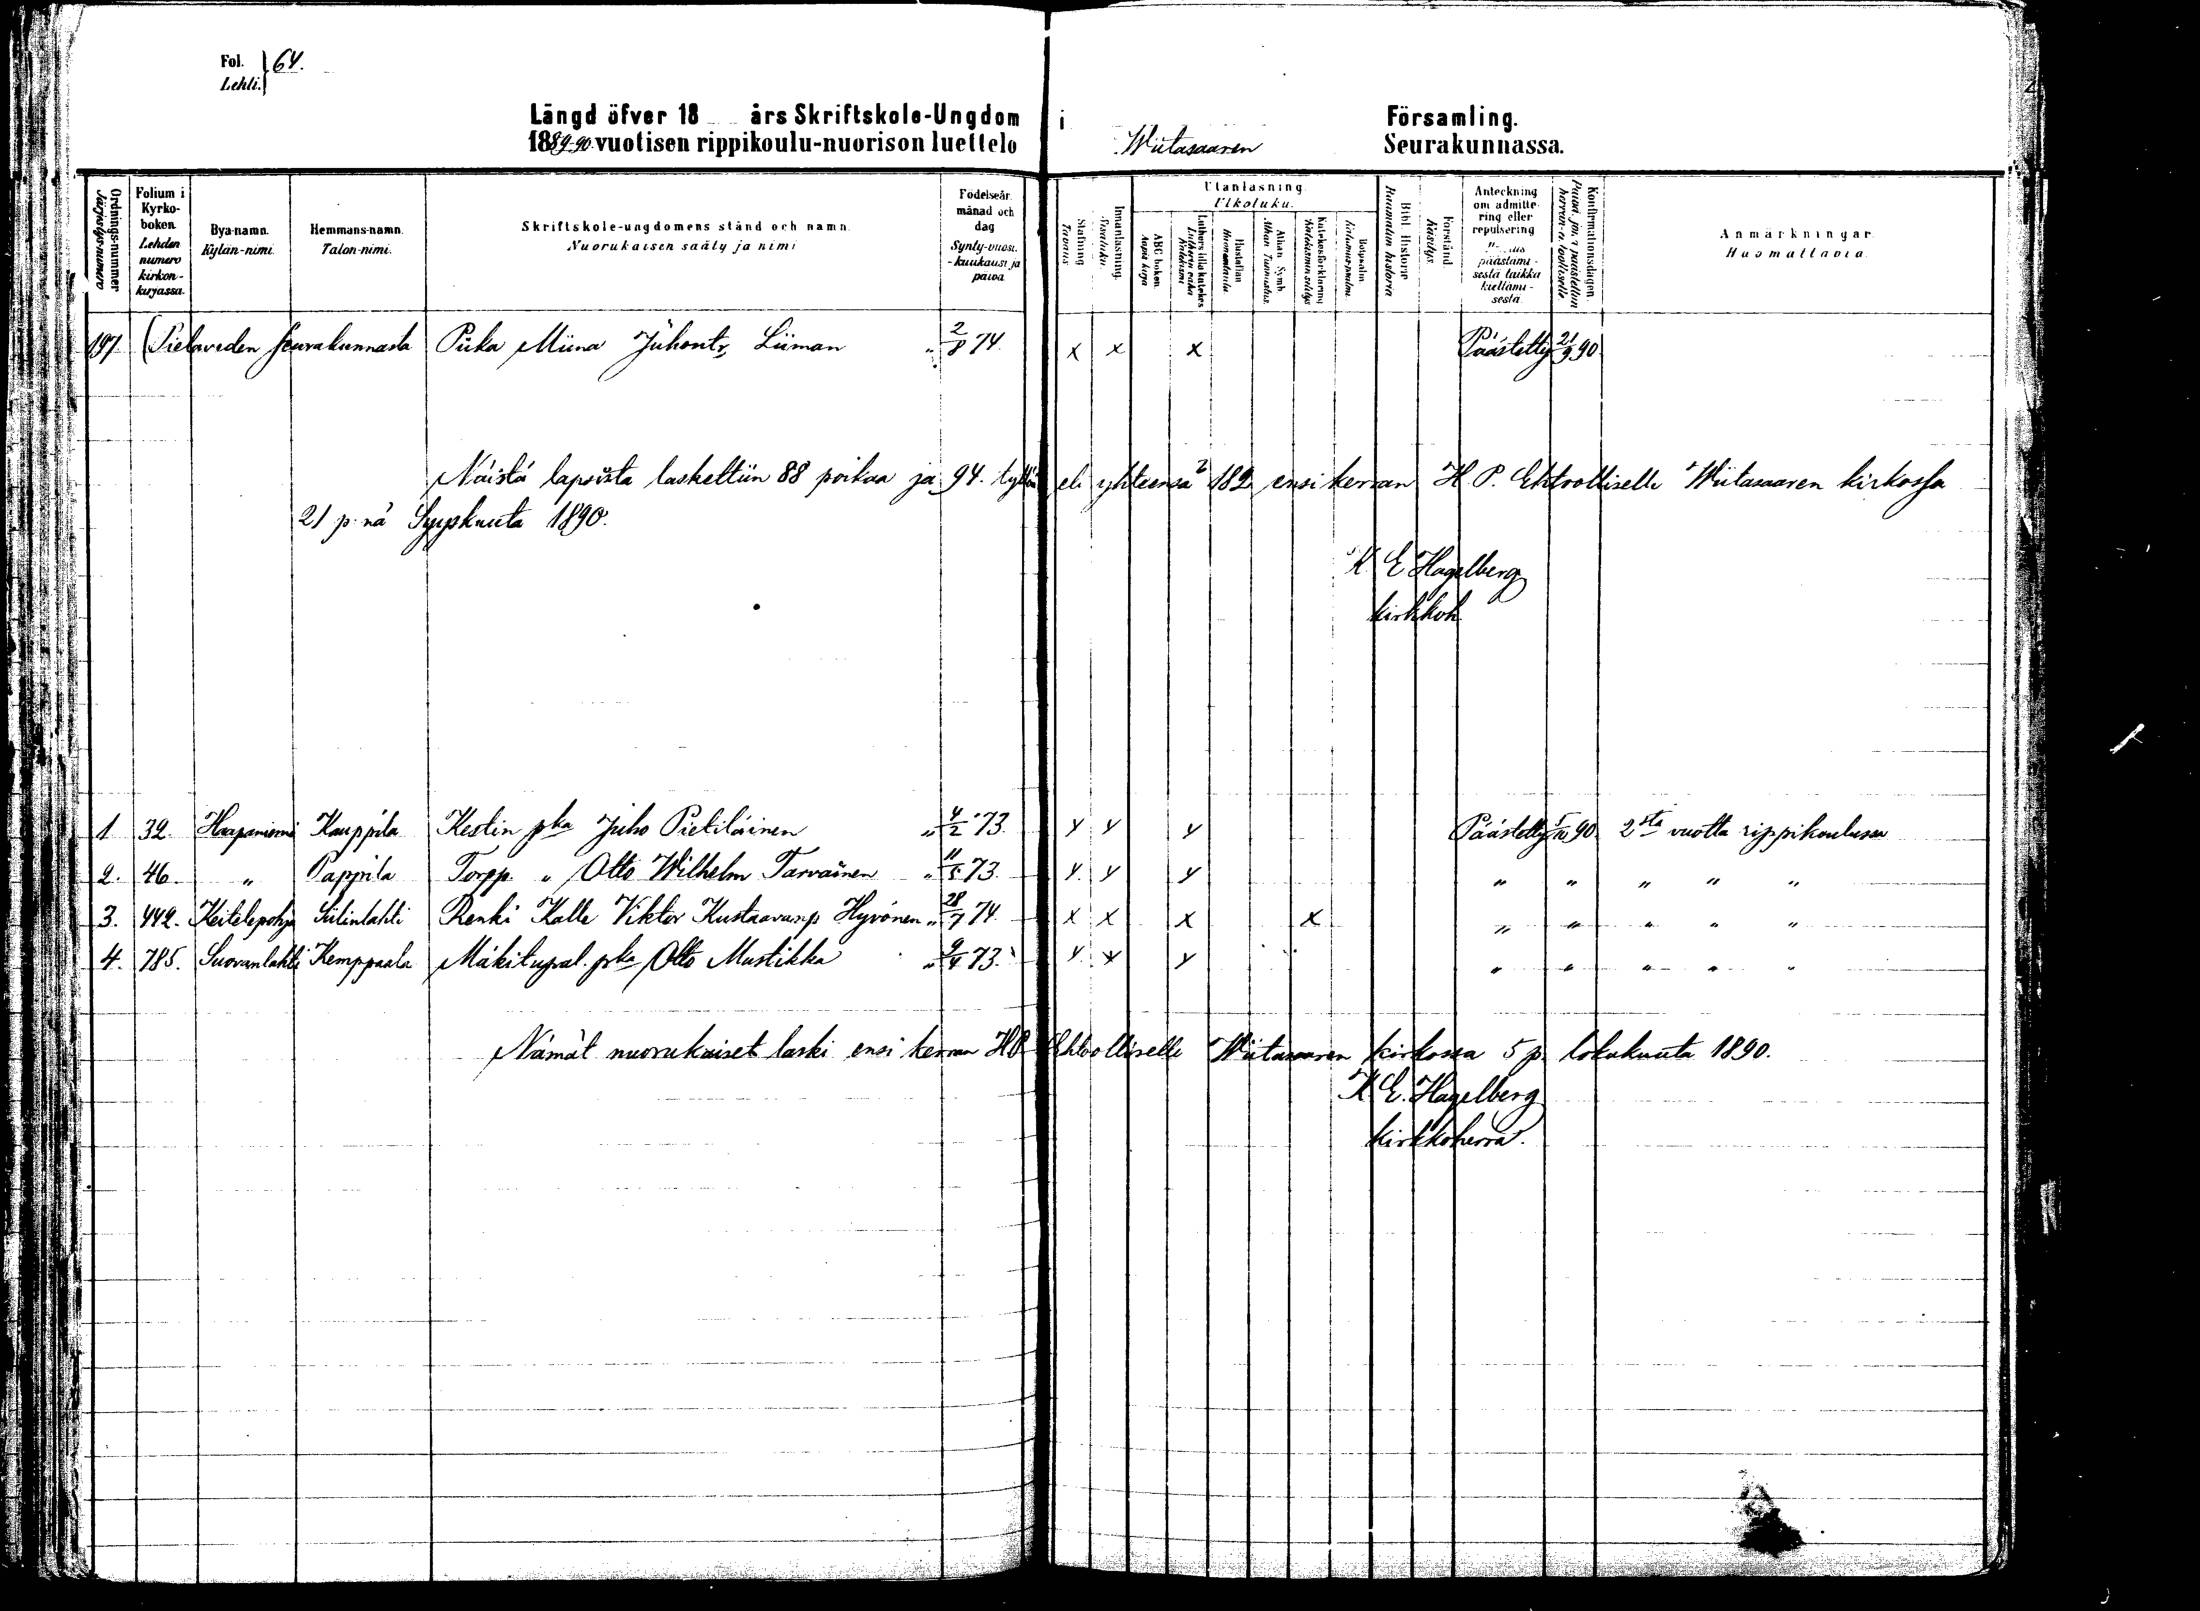 Fol. Lehti. } 64.
Längd öfver 18 års Skriftskole-Ungdom i Församling.
1889-90 vuotisen rippikoulu-nuorison luettelo Wiitasaaren Seurakunnassa.
Ordnings-nummer Järjestys-numero
Folium i Kyrko-boken. Lehden numero kirkon-kirjassa.
Bya-namn. Kylän-nimi.
Hemmans-namn. Talon-nimi.
Skriftskole-ungdomens stånd och namn. Nuorukaisen sääty ja nimi
Födelseår månad och dag Synty-vuosi, -kuukausi ja päivä
Stafning Tavaus
Innanläsning. Sisäluku.
Utanläsning. Ulkoluku.
ABC boken. Aapis kirja
Luthers lilla katekes Lutherin vähä Katekismi
Hustaflan Huoneentaulu
Athan. Symb. Athan. Tunnustus.
Katekesförklaring Katekismin selitys
Botpsalm. Katumus-psalmi.
Bibl. Historie Raamatun historia
Förstånd. Käsitys.
Anteckning om admittering eller repulsering päästämisestä taikka kieltämisestä.
Konfirmationsdagen.
Anmärkningar Huomattavia
197. (Pielaveden seurakunnasta Piika Miina Juhontr Liiman " 2/8 74. x x x Päästetty 21/9 90.
Näistä lapsista laskettiin 88 poikaa ja 94. tyttöä eli yhteensä 182 ensi kerran H. P. Ehtoolliselle Wiitasaaren kirkossa
21 p:nä Syyskuuta 1890.
K E Hagelberg
kirkkoh.
1 32. Haapaniemi Kauppila Kestin pka Juho Pietiläinen " 4/2 73. y y y Päästetty 5/10 90 2sta vuotta rippikoulussa
2. 46 " Pappila Torpp. " Otto Wilhelm Tarvainen " 11/5 73. y y y " " " " "
3. 442. Keitelepohja Siilinlahti Renki Kalle Viktor Kustaavanp Hyvönen " 28/7 74. x x x x " " " " "
4. 785. Suovanlahti Kemppaala Mäkitupal. pka Otto Mustikka " 9/4 73. y y y " " " " "
Nämät nuorukaiset laski ensi kerran HP Ehtoolliselle Wiitasaaren kirkossa 5 p. lokakuuta 1890.
K. E. Hagelberg
kirkkoherra.